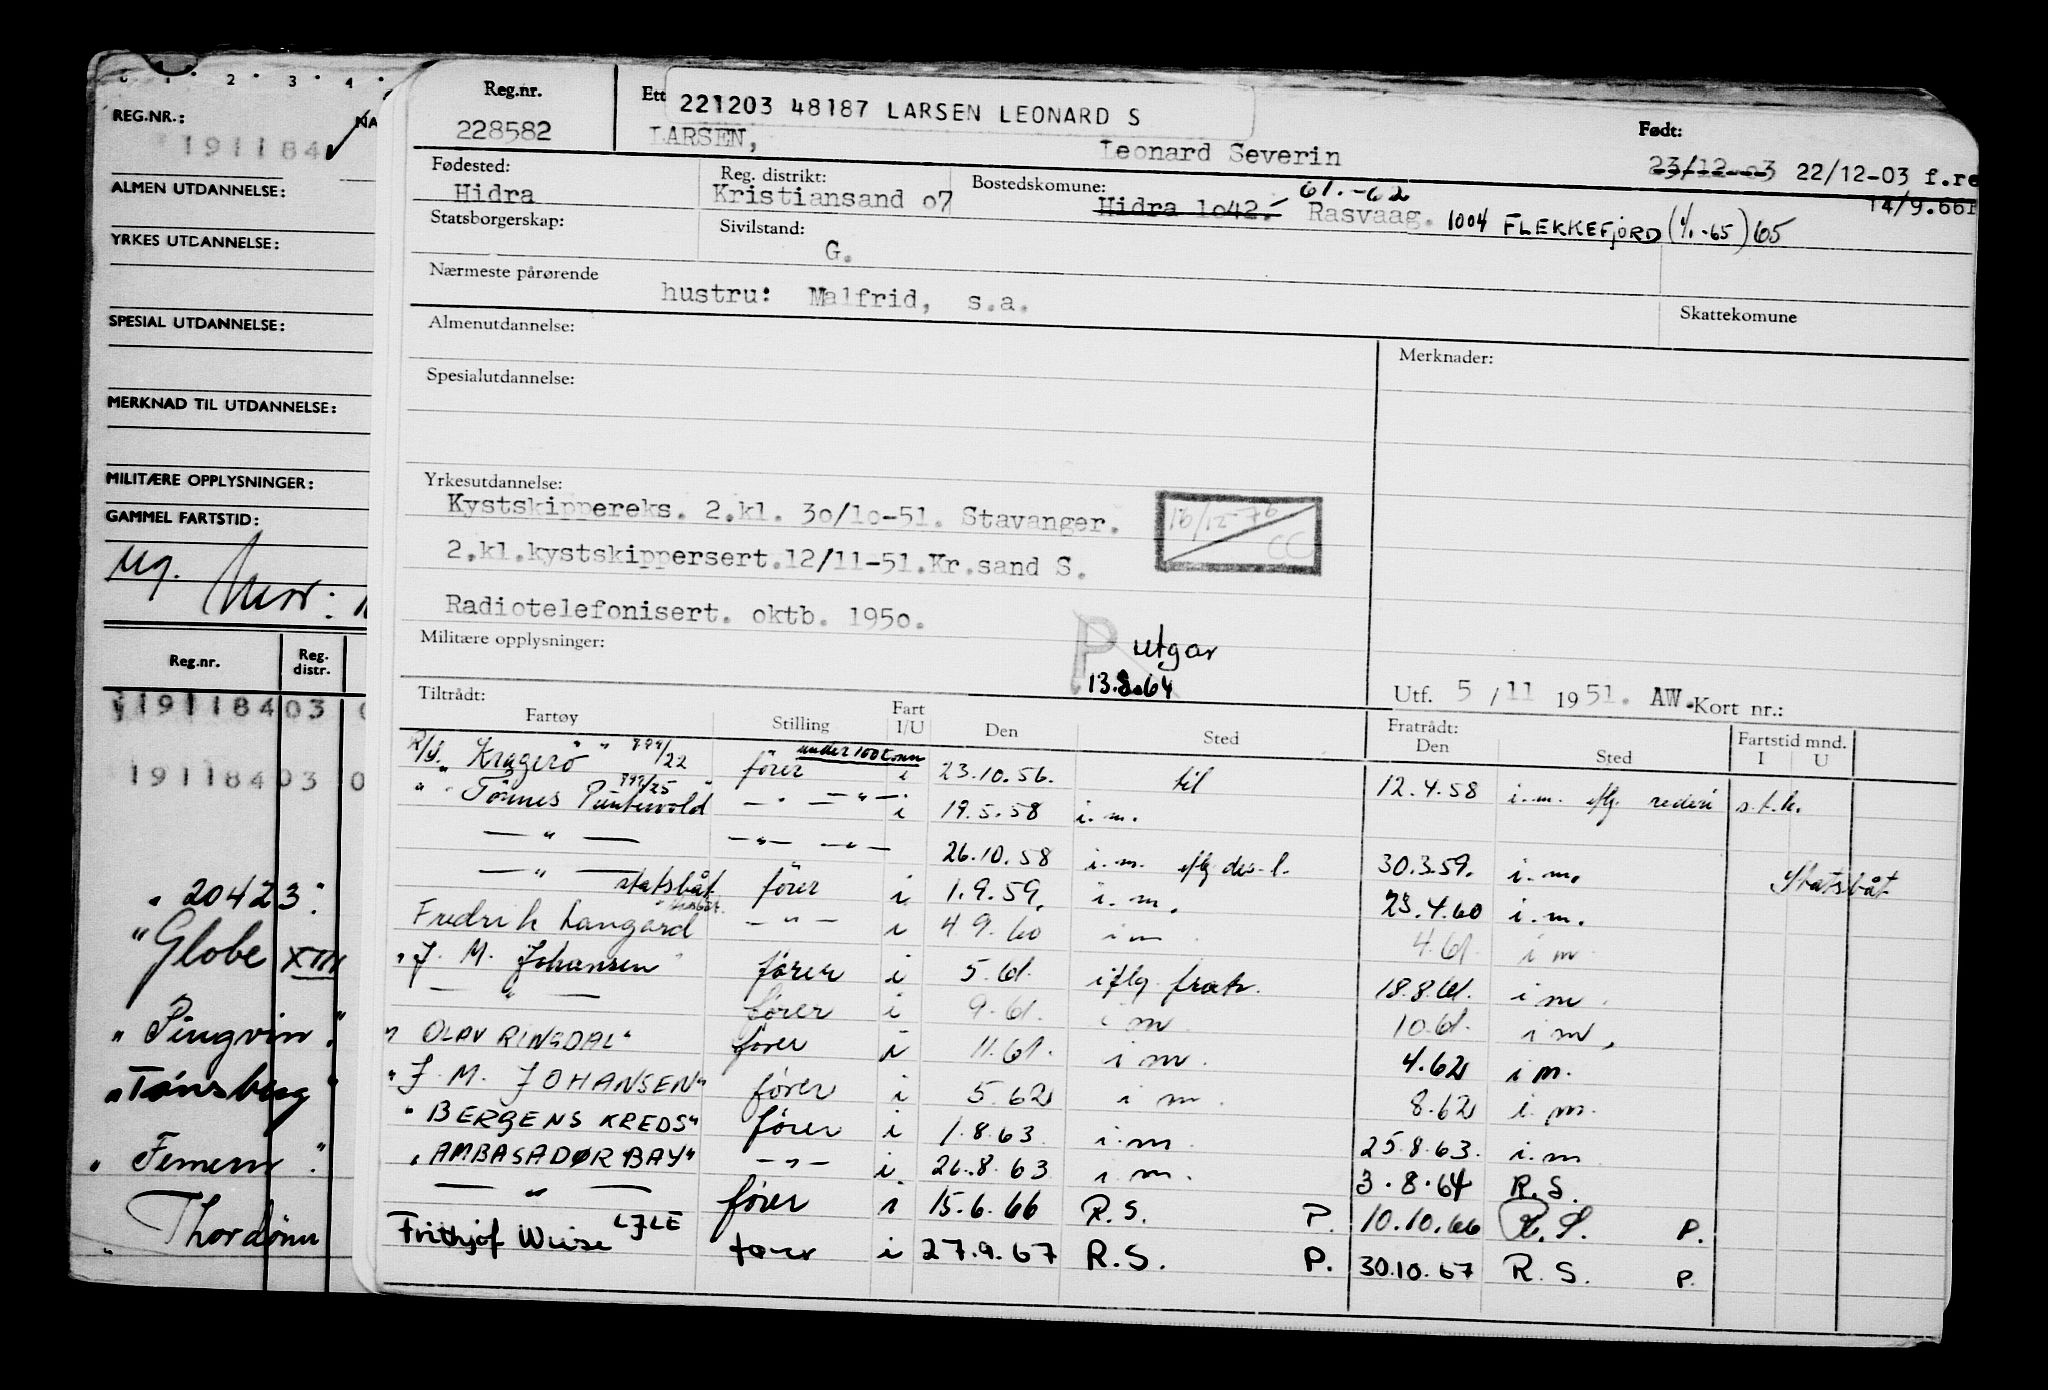 1 . 2 . 3 . 4 .
REG.NR.:
191184
ALMEN UTDANNELSE:
YRKES UTDANNELSE:
SPESIAL UTDANNELSE:
MERKNAD TIL UTDANNELSE:
MILITÆRE OPPLYSNINGER:
GAMMEL FARTSTID:
Reg.nr. Reg. distr.
191184 03 0
191184 03 0
"20423"
"Globe XIII
"Pingvin"
"Tønsberg"
"Femern"
"Thordønn
Reg.nr. Ett
228582
221203 48187 LARSEN LEONARD S
LARSEN, Leonard Severin
Født:
23/12-03 22/12-03 f.re
14/9.66
Fødested: Reg. distrikt: Bostedskomune:
Hidra Kristiansand o7 Hidra 1o42.- 61.-62 Rasvaag. 1004 FLEKKEFJORD (1/1-65) 65
Statsborgerskap: Sivilstand:
G.
Nærmeste pårørende
hustru: Malfrid, s.a.
Skattekomune
Almenutdannelse: Merknader:
Spesialutdannelse:
Yrkesutdannelse:
Kystskippereks. 2.kl. 3o/1o-51. Stavanger.
16/12-76 CC
2.kl.kystskippersert.12/11-51.Kr.sand S.
Radiotelefonisert. oktb. 195o.
Militære opplysninger:
P utgår
13.8.64
Utf. 5 / 11 1951. AW. Kort nr.:
Tiltrådt: Fratrådt: Fartstid mnd.
Fartøy Stilling Fart I/U Den Sted Den Sted I U
R/S. "Kragerö" 22 fører under 100 tonn i 23.10.56. til 12.4.58 i.m. iflg. rederi
" Tönnes Puntervold" 25 — " — — " — i 19.5.58 i.m.
— " — — " — — " — 26.10.58 i.m. 30.3.59. i.m. Statsbåt
— " — statsbåt fører i 1.9.59. i.m. 23.4.60 i.m.
Fredrik Langård — " — i 4 9.60 i m 4.61 i m
"J. M. Johansen" fører i 5.61. iflg. fratr. 18.8.61. i m.
— " — fører i 9.61. i m. 10.61. i m.
" OLAV RINGDAL" fører i 11.61. i m. 4.62 i m.
"J. M. JOHANSEN" fører i 5.62 i m. 8.62 i m.
"BERGENS KREDS" fører i 1.8.63. i.m. 25.8.63. i.m
"AMBASADØR BAY" — " — i. 26.8.63 i m. 3.8.64 R.S.
— " — fører i 15.6.66 R.S. P. 10.10.66 R.S. P.
Frithjof Wiese LJLE fører i 27.9.67 R.S. P. 30.10.67 R.S. P.